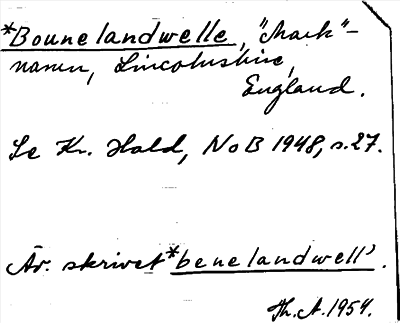 *Bounelandwelle, "Mark"-
namn, Lincolnshire,
England.
Se Kr. Hald, NoB 1948, s.27.
Är. skrivet *benelandwell'.
Th.A.1954.